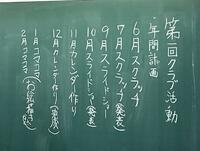 第一回クラブ活動
年間計画
6月スクラッチ
7月スクラッチ(発表)
9月スライドショー
10月スライドショー(発表)
11月カレンダー作り
12月カレンダー作り(発表)
1月コマコマ
2月コマコマ